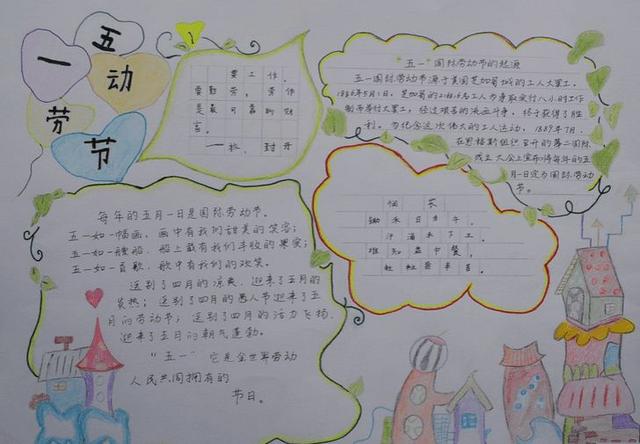 五一
劳动节
要工作,
要勤劳,劳作
是最可靠的财
富。
一拉·封丹
"五一"国际劳动节的起源
五一国际劳动节源于美国芝加哥城的工人大罢工。
1886年5月1日,芝加哥的216000名工人为争取实行八小时工作
制而举行大罢工,经过艰苦的流血斗争,终于获得了胜
利。为纪念这次伟大的工人运动,1889年7月,
在恩格斯组织召开的第二国际
成立大会上宣布将每年的五
月一日定为国际劳动
节。
悯农
锄禾日当午,
汗滴禾下土。
谁知盘中餐,
粒粒皆辛苦。
每年的五月一日是国际劳动节。
五一如一幅画,画中有我们甜美的笑容;
五一如一艘船,船上载有我们丰收的果实;
五一如一首歌,歌中有我们的欢笑。
送别了四月的凉爽,迎来了五月的
炎热;送别了四月的愚人节迎来了五
月的劳动节;送别了四月的活力飞扬,
迎来了五月的朝气蓬勃。
"五一"它是全世界劳动
人民共同拥有的
节日。